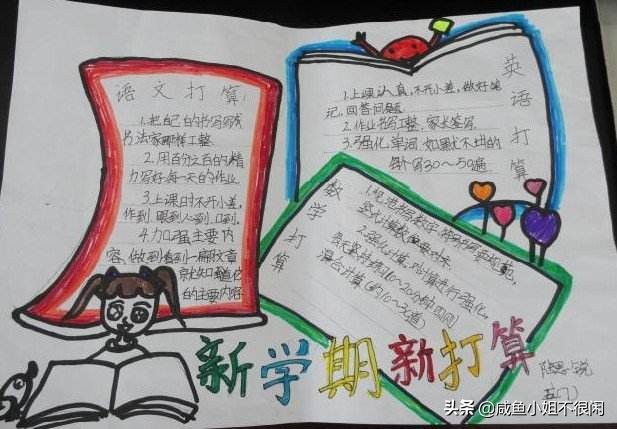 语文打算:
1.把自己的书写写成
书法家那样工整.
2.用百分之百的精
力写好每一天的作业.
3.上课时不开小差,
作到,眼到心到、口到.
4.加强主要内
容,做到看到一篇文章
就知道它
的主要内容
英语打算
1.上课认真,不开小差,做好笔
记,回答问题
2.作业书写工整,家长签写.
3.强化单词,如果忙不过的
每个写30~50遍
数学打算
2.强化计算,对计算进行强化,
每天坚持练10~20分钟四则
混合计算(约10~20道)
新学期新打算
头条@咸鱼小姐不很闲